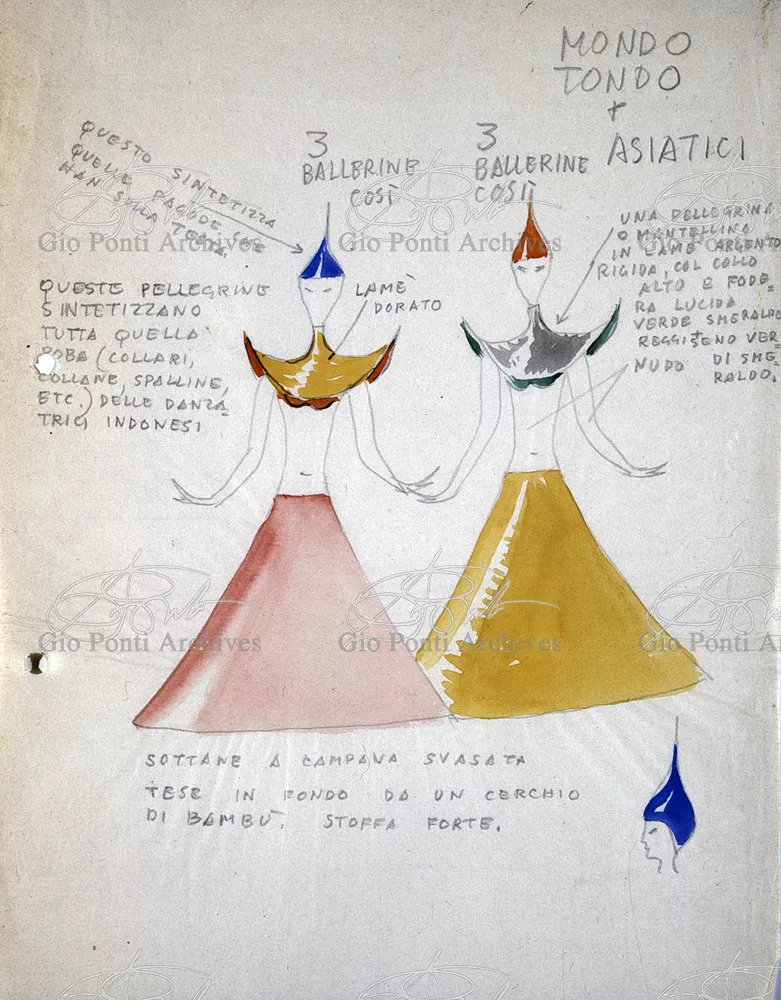 MONDO
TONDO
+
ASIATICI
QUESTO SINTETIZZA
QUELLE PAGODE CHE
HAN SULLA TESTA
3
BALLERINE
COSÌ
3
BALLERINE
COSÌ
UNA PELLEGRINA
O MANTELLINO
IN LAMÈ ARGENTO
RIGIDA, COL COLLO
ALTO E FODE-
RA LUCIDA
VERDE SMERALDO
REGGISENO VER-
NUDO DI SME-
RALDO.
QUESTE PELLEGRINE
SINTETIZZANO
TUTTA QUELLA
ROBA (COLLARI,
COLLANE, SPALLINE,
ETC.) DELLE DANZA-
TRICI INDONESI
LAMÈ
DORATO
SOTTANE A CAMPANA SVASATA
TESE IN FONDO DA UN CERCHIO
DI BAMBÙ. STOFFA FORTE.
Gio Ponti Archives
Gio Ponti Archives
Gio Ponti Archives
Gio Ponti Archives
Gio Ponti Archives
Gio Ponti A